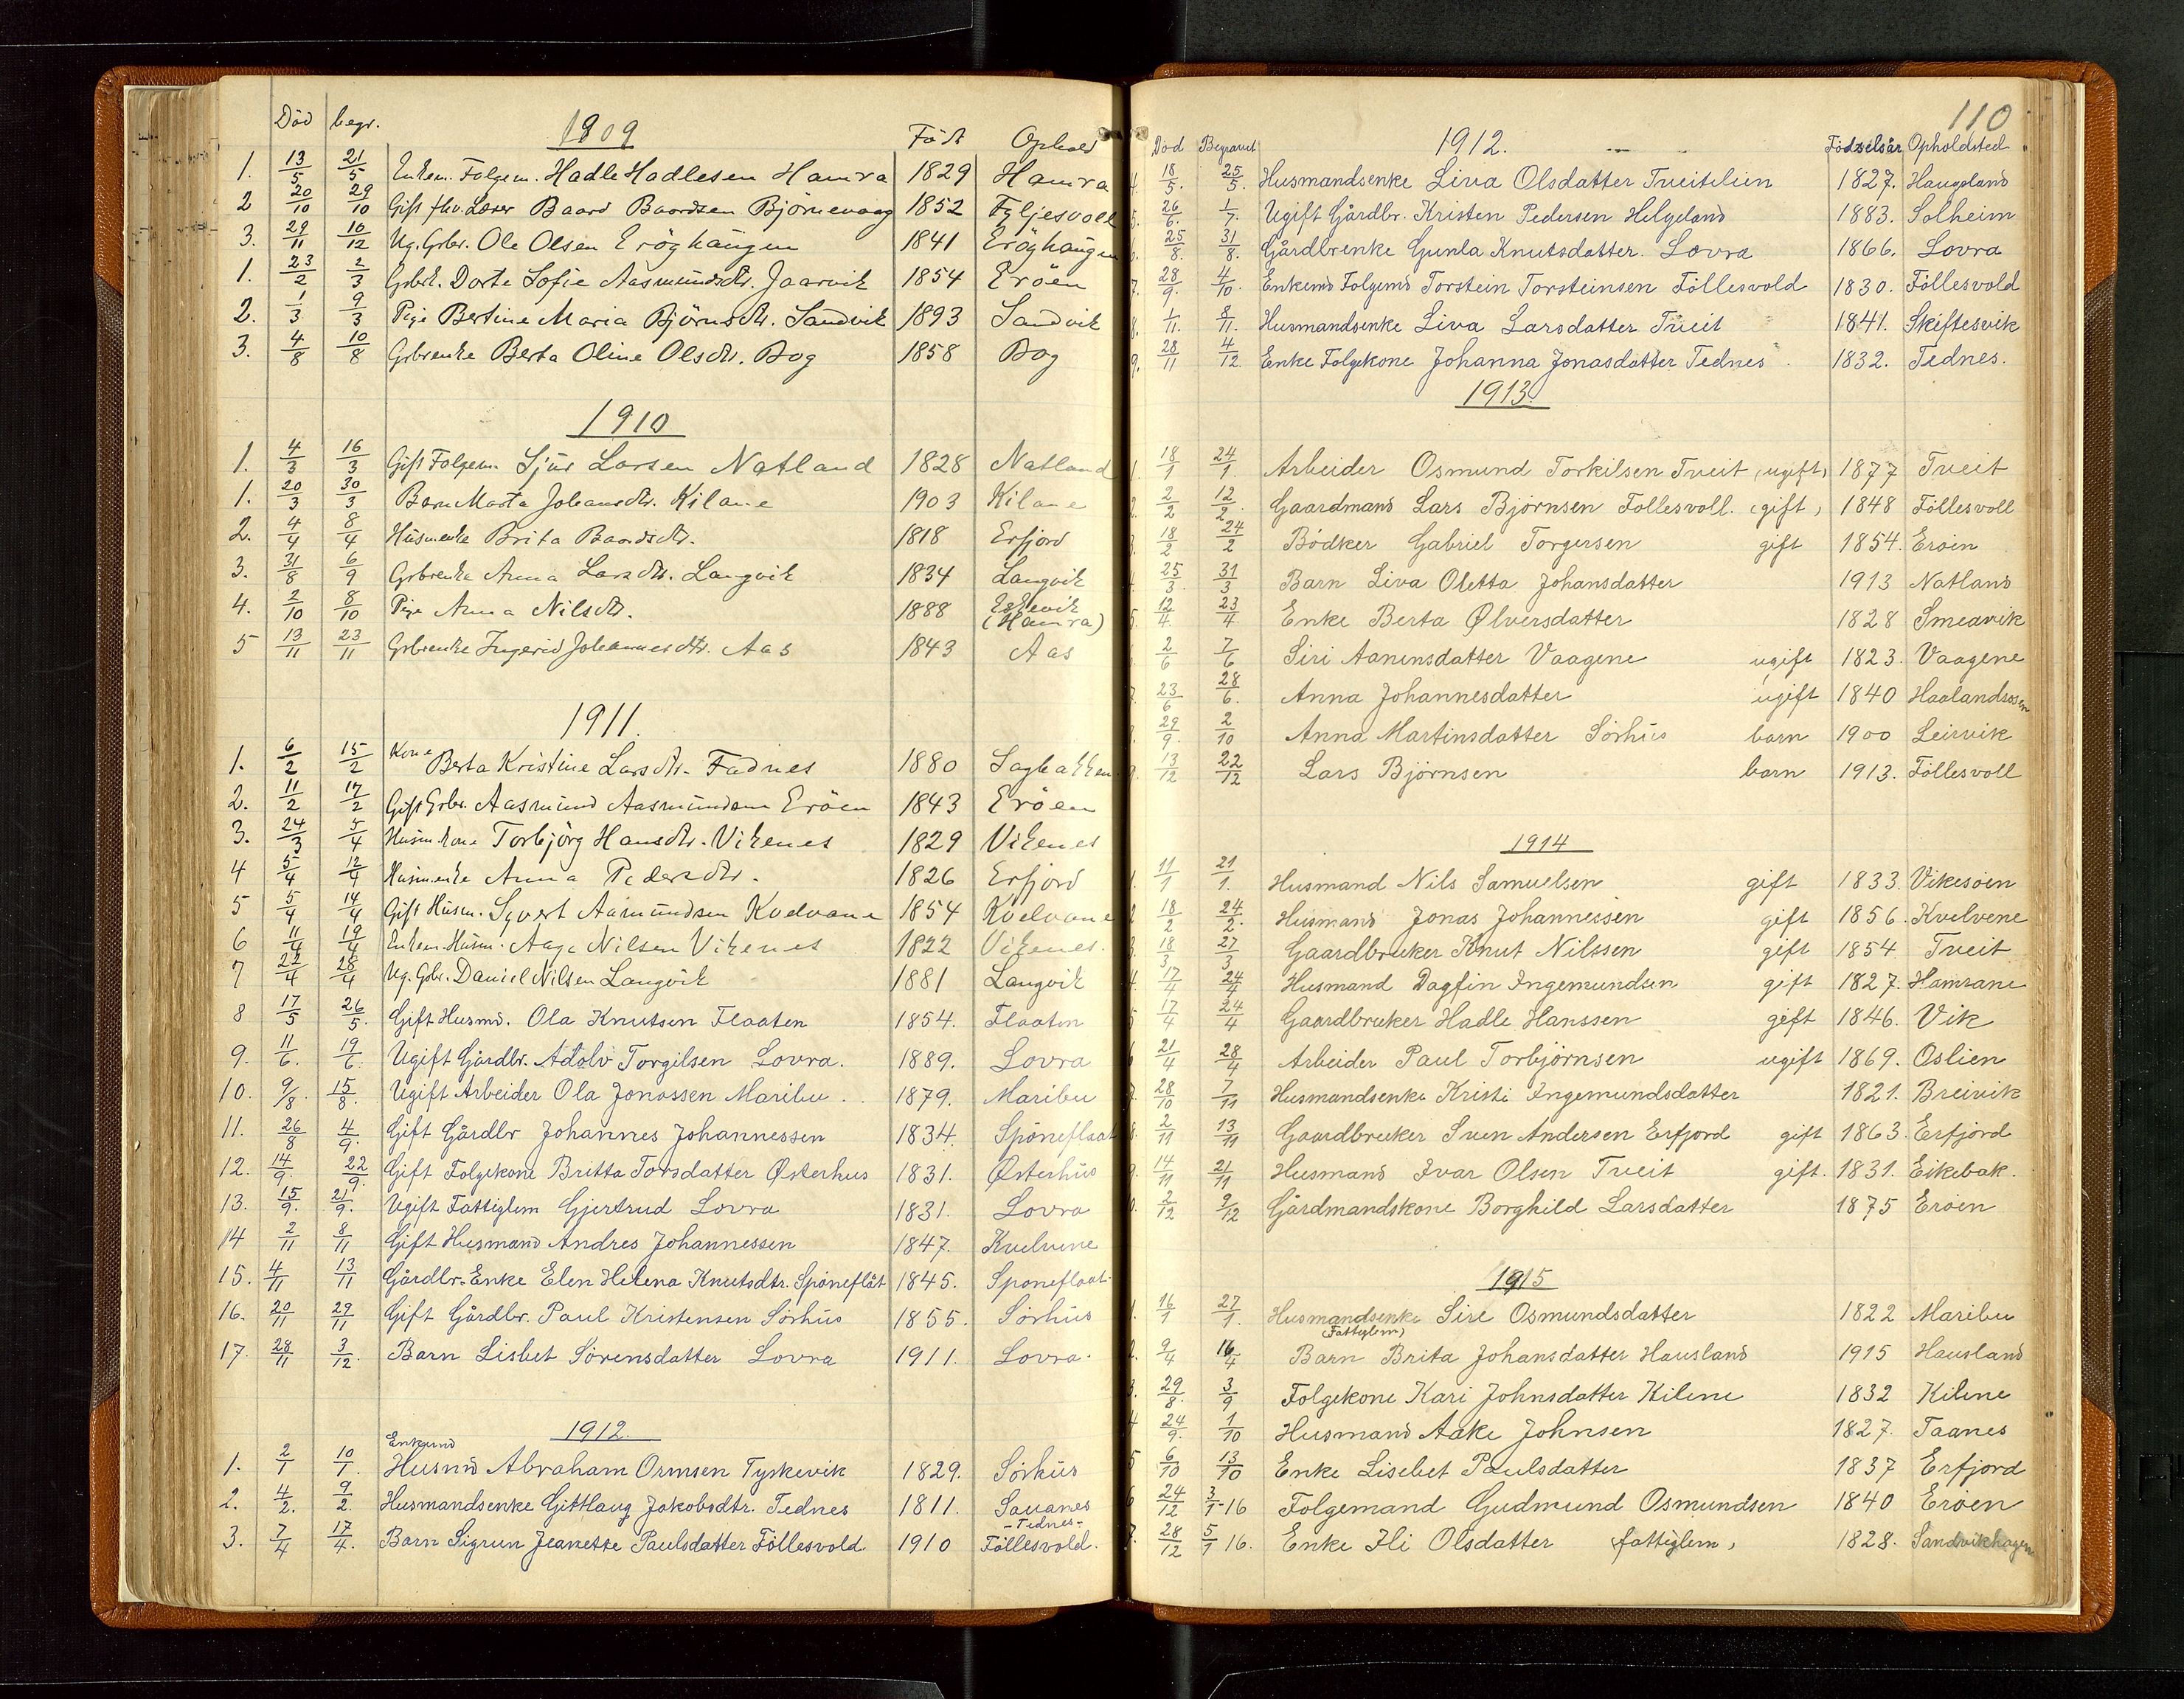 Död begr. 1909 Födt Ophold
1. 13/5 21/5 Enkem. Folgem. Hadle Hadlesen Hamra 1829 Hamra
2 20/10 29/10 Gift fhv. Lærer Baard Baardsen Björnevaag 1852 Fyljesvoll
3. 29/11 10/12 Ug. Grbr. Ole Olsen Eröghaugen 1841 Eröghaugen
1. 23/2 2/3 Grbrk. Dorte Sofie Aasmundsdtr. Jaarvik 1854 Eröen
2. 1/3 9/3 Pige Bertine Maria Björnsdtr. Sandvik 1893 Sandvik
3. 4/8 10/8 Grbrenke Berta Oline Olsdtr. Bog 1858 Bog
1910
1. 4/3 16/3 Gift Folgem. Sjur Larsen Natland 1828 Natland
1. 20/3 30/3 Barn Marta Johansdtr. Kilane 1903 Kilane
2. 4/4 8/4 Husmenke Brita Baardsdtr. 1818 Erfjord
3. 31/8 6/9 Grbrenke Anna Larsdtr. Langvik 1834 Langvik
4. 2/10 8/10 Pige Anna Nilsdtr. 1888 Eskevik (Hamra)
5 13/11 23/11 Grbrenke Ingerid Johannesdtr. Aas 1843 Aas
1911.
1. 6/2 15/2 Kone Berta Kristine Larsdtr. Fadnes 1880 Sagbakken
2. 11/2 17/2 Gift Grbr. Aasmund Aasmundsen Eröen 1843 Eröen
3. 24/3 5/4 Husm.kone Torbjörg Hansdtr. Vikenes 1829 Vikenes
4 5/4 12/4 Husm.enke Anna Pedersdtr. 1826 Erfjord
5 5/4 14/4 Gift Husm. Syvert Aamundsen Kvelvane 1854 Kvelvane
6 11/4 19/4 Enkem. Husm. Aage Nilsen Vikenes 1822 Vikenes.
7 22/4 28/4 Ug. Gbr. Daniel Nilsen Langvik 1881 Langvik
8 17/5 26/5. Gift Husmd. Ola Knutsen Flaaten 1854. Flaaten
9. 11/6. 19/6. Ugift Gårdbr. Adolv Torgilsen Lovra. 1889. Lovra
10. 9/8. 15/8. Ugift Arbeider Ola Jonassen Maribu. 1879. Maribu
11. 26/8 4/9. Gift Gårdbr Johannes Johannessen 1834. Spöneflaat
12. 14/9. 22/9. Gift Folgekone Britta Torsdatter Østerhus 1831. Østerhus
13. 15/9. 21/9. Ugift Fattiglem Gjertrud Lovra 1831. Lovra
14 2/11 8/11 Gift Husmand Andres Johannessen 1847. Kvelvene
15. 4/11 13/11 Gårdbr.Enke Elen Helena Knutsdtr. Spöneflåt 1845. Sponeflaat.
16. 20/11 29/11 Gift Gårdbr. Paul Kristensen Sörhus 1855. Sörhus
17. 28/11 3/12. Barn Lisbet Sörensdatter Lovra 1911. Lovra.
1912.
Enkemd
1. 2/1 10/1. Husmd Abraham Ormsen Tyskevik 1829. Sörhus
2. 4/2. 9/2. Husmandsenke Gitlaug Jakobsdtr. Tednes 1811. Sauanes
-Tednes-
3. 7/4 17/4. Barn Sigrun Jeanette Paulsdatter Föllesvold 1910 Föllesvold.
110
Död Begravet 1912. Födselsår Opholdsted
4. 18/5. 25/5. Husmandsenke Liva Olsdatter Tveitelien 1827. Haugeland
5. 26/6. 1/7. Ugift Gårdbr. Kristen Pedersen Helgeland 1883. Solheim
6. 25/8. 31/8. Gårdbrenke Gunla Knutsdatter. Lovra 1866. Lovra
7. 28/9. 4/10. Enkemd Folgemd Torstein Torsteinsen Föllesvold 1830. Föllesvold
8. 1/11. 8/11. Husmandsenke Liva Larsdatter Tveit 1841. Skiftesvik
9. 28/11 4/12. Enke Folgekone Johanna Jonasdatter Tednes. 1832. Tednes.
1913.
1. 18/1 24/1. Arbeider Osmund Torkilsen Tveit (ugift) 1877 Tveit
2. 2/2 12/2. Gaardmand Lars Björnsen Follesvoll. (gift) 1848 Föllesvoll
3. 18/2 24/2 Bödker Gabriel Torgersen gift 1854. Eröen
4. 25/3. 31/3 Barn Liva Oletta Johansdatter 1913 Natland
5. 12/4. 23/4. Enke Berta Ølversdatter 1828 Smeavik
6. 2/6 7/6 Siri Aanensdatter Vaagene ugift 1823. Vaagene
7. 23/6 28/6. Anna Johannesdatter ugift 1840 Haalandsosen
8. 29/9. 2/10 Anna Martinsdatter Sörhus barn 1900 Leirvik
9. 13/12 22/12 Lars Björnsen barn 1913. Föllesvoll
1914
1. 11/1 21/1. Husmand Nils Samuelsen gift 1833. Vikesöen
2 18/2 24/2. Husmand Jonas Johannessen gift 1856. Kvelvene
3. 18/3 27/3 Gaardbruker Knut Nilssen gift 1854 Tveit
4. 17/4 24/4 Husmand Dagfin Ingemundsen gift 1827. Hamrane
5 17/4 24/4 Gaardbruker Hadle Hanssen gift 1846. Vik
6 21/4 28/4 Arbeider Paul Torbjörnsen ugift 1869. Oslien
7. 28/10 7/11 Husmandsenke Kristi Ingemundsdatter 1821. Breivik
8. 2/11 13/11 Gaardbruker Sven Andersen Erfjord gift 1863. Erfjord
9. 14/11 21/11 Husmand Ivar Olsen Tveit gift. 1831. Eikebak.
10. 2/12 9/12 Gårdmandskone Borghild Larsdatter 1875 Eröen
1915
1. 16/1 27/1. Husmandsenke Sire Osmundsdatter 1822 Maribu
(Fattiglem)
2. 9/4 16/4 Barn Brita Johansdatter Hausland 1915 Hausland
3. 29/8. 3/9 Folgekone Kari Johnsdatter Kilene 1832 Kilene
4 24/9. 1/10 Husmand Aake Johnsen 1827. Taanes
5 6/10 13/10 Enke Lisebet Paulsdatter 1837 Erfjord
6 24/12 3/1-16 Folgemand Gudmund Osmundsen 1840 Eröen
7. 28/12 5/1 16. Enke Ili Olsdatter (fattiglem) 1828. Sandvikhagen